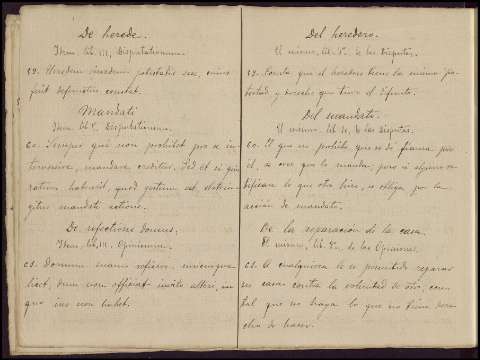 De herede.
Idem, lib. III, Disputationum.
59. Heredem eiusdem potestatis esse, cuius
fuit defunctus constat.
Mandati
Idem lib. V. Disputationum.
60. Semper qui non prohibet pro se in-
tervenire, mandare creditur. Sed et si quis
ratum habuerit, quod gestum est, obstrin-
gitur mandati actione.
De refectione domus.
Idem, lib. III, Opinionum.
61. Domum suam reficere unicuique
licet, dum non officiat invito alteri, in
quo ius non habet.
Del heredero.
El mismo, lib. de las Disputas.
59. Consta que el heredero tiene la misma po-
testad y derecho que tuvo el difunto.
Del mandato.
El mismo, lib. de las Disputas.
60. El que no prohibe que se dé fianza por
él, se cree que lo manda; pero si alguno ra-
tificare lo que otro hizo, se obliga por la
acción de mandato.
De la reparación de la casa.
El mismo, lib. de las Opiniones.
61. A cualquiera le es permitido reparar
su casa contra la voluntad de otro, con
tal que no haga lo que no tiene dere-
cho de hacer.